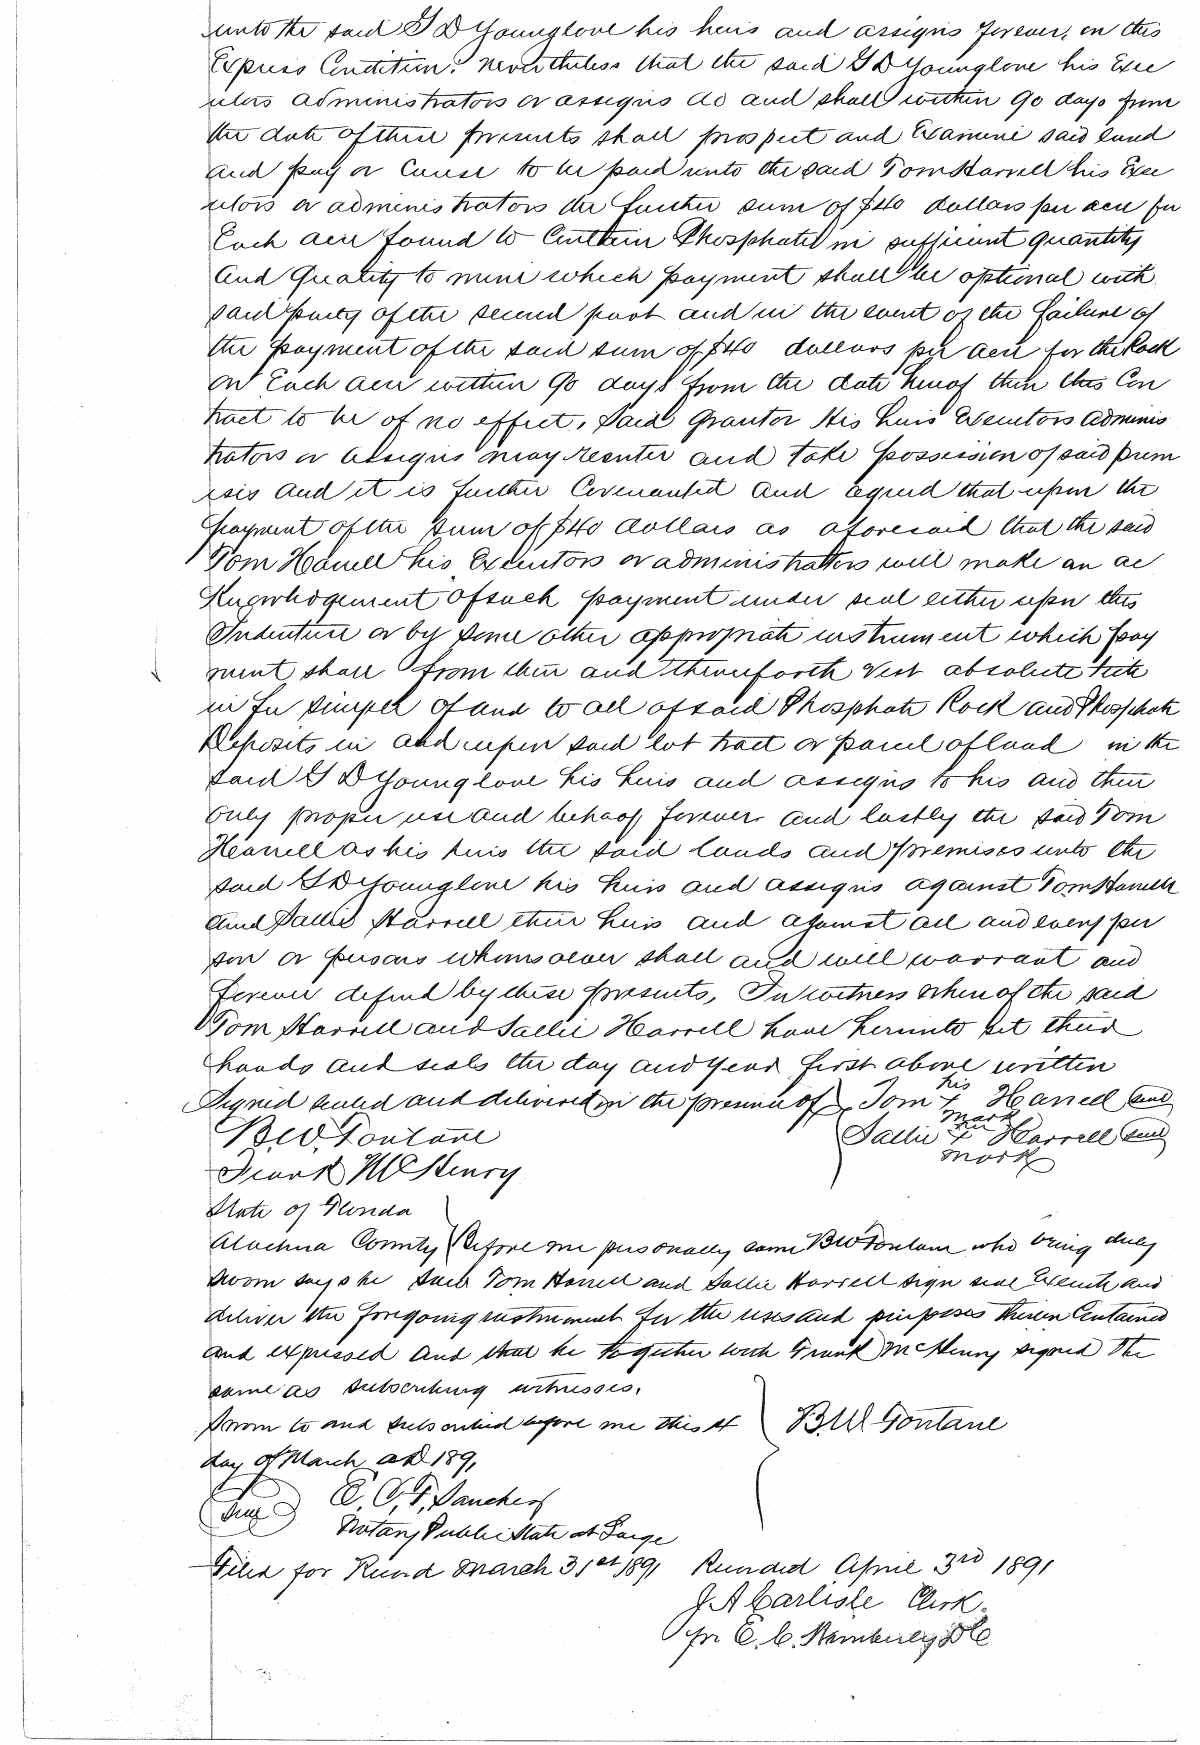 unto the said G D Younglove his heirs and assigns forever, on this
Express Condition. nevertheless that the said G D Younglove his Exec
utors administrators or assigns do and shall within 90 days from
the date of these presents shall prospect and Examine said land
and pay or Cause to be paid unto the said Tom Harrell his Exec
utors or administrators the further sum of $40 dollars per acre for
Each acre found to Contain Phosphate in sufficient quantity
and Quality to mine which payment shall be optional with
said party of the second part and in the event of the failure of
the payment of the said sum of $40 dollars per acre for the Rock
on Each acre within 90 days from the date hereof then this Con
tract to be of no effect. Said grantor His heirs Executors adminis
trators or assigns may reenter and take possession of said prem
isis and it is further Covenanted and agreed that upon the
payment of the sum of $40 dollars as aforesaid that the said
Tom Harrell his Executors or administrators will make an ac
Knowledgement of such payment under seal either upon this
Indenture or by some other appropriate instrument which pay
ment shall from then and thenceforth vest absolute title
in fee simple of and to all of said Phosphate Rock and Phosphate
Deposits in and upon said lot tract or parcel of land in the
said G D Younglove his heirs and assigns to his and their
only proper use and behoof forever and lastly the said Tom
Harrell as his heirs the said lands and premises unto the
said G D Younglove his heirs and assigns against Tom Harrell
and Sallie Harrell their heirs and against all and every per
son or persons whomsoever shall and will warrant and
forever defend by these presents, In witness whereof the said
Tom Harrell and Sallie Harrell have hereunto set their
hands and seals the day and year first above written
Signed sealed and delivered in the presence of Tom his X mark Harrell seal
B.W. Fontane Sallie her X mark Harrell seal
Frank McHenry
State of Florida
Alachua County Before me personally came B W Fontane who being duly
sworn says he saw Tom Harrell and Sallie Harrell sign seal Execute and
deliver the foregoing instrument for the uses and purposes therein Contained
and expressed and that he together with Frank McHenry signed the
same as subscribing witnesses.
Sworn to and subscribed before me this 4 B.W. Fontane
day of March AD 1891
seal E. C. F. Sanchez
Notary Public State at Large
Filed for Record March 31st 1891 Recorded April 3rd 1891
J A Carlisle Clerk.
pr E. C. DC